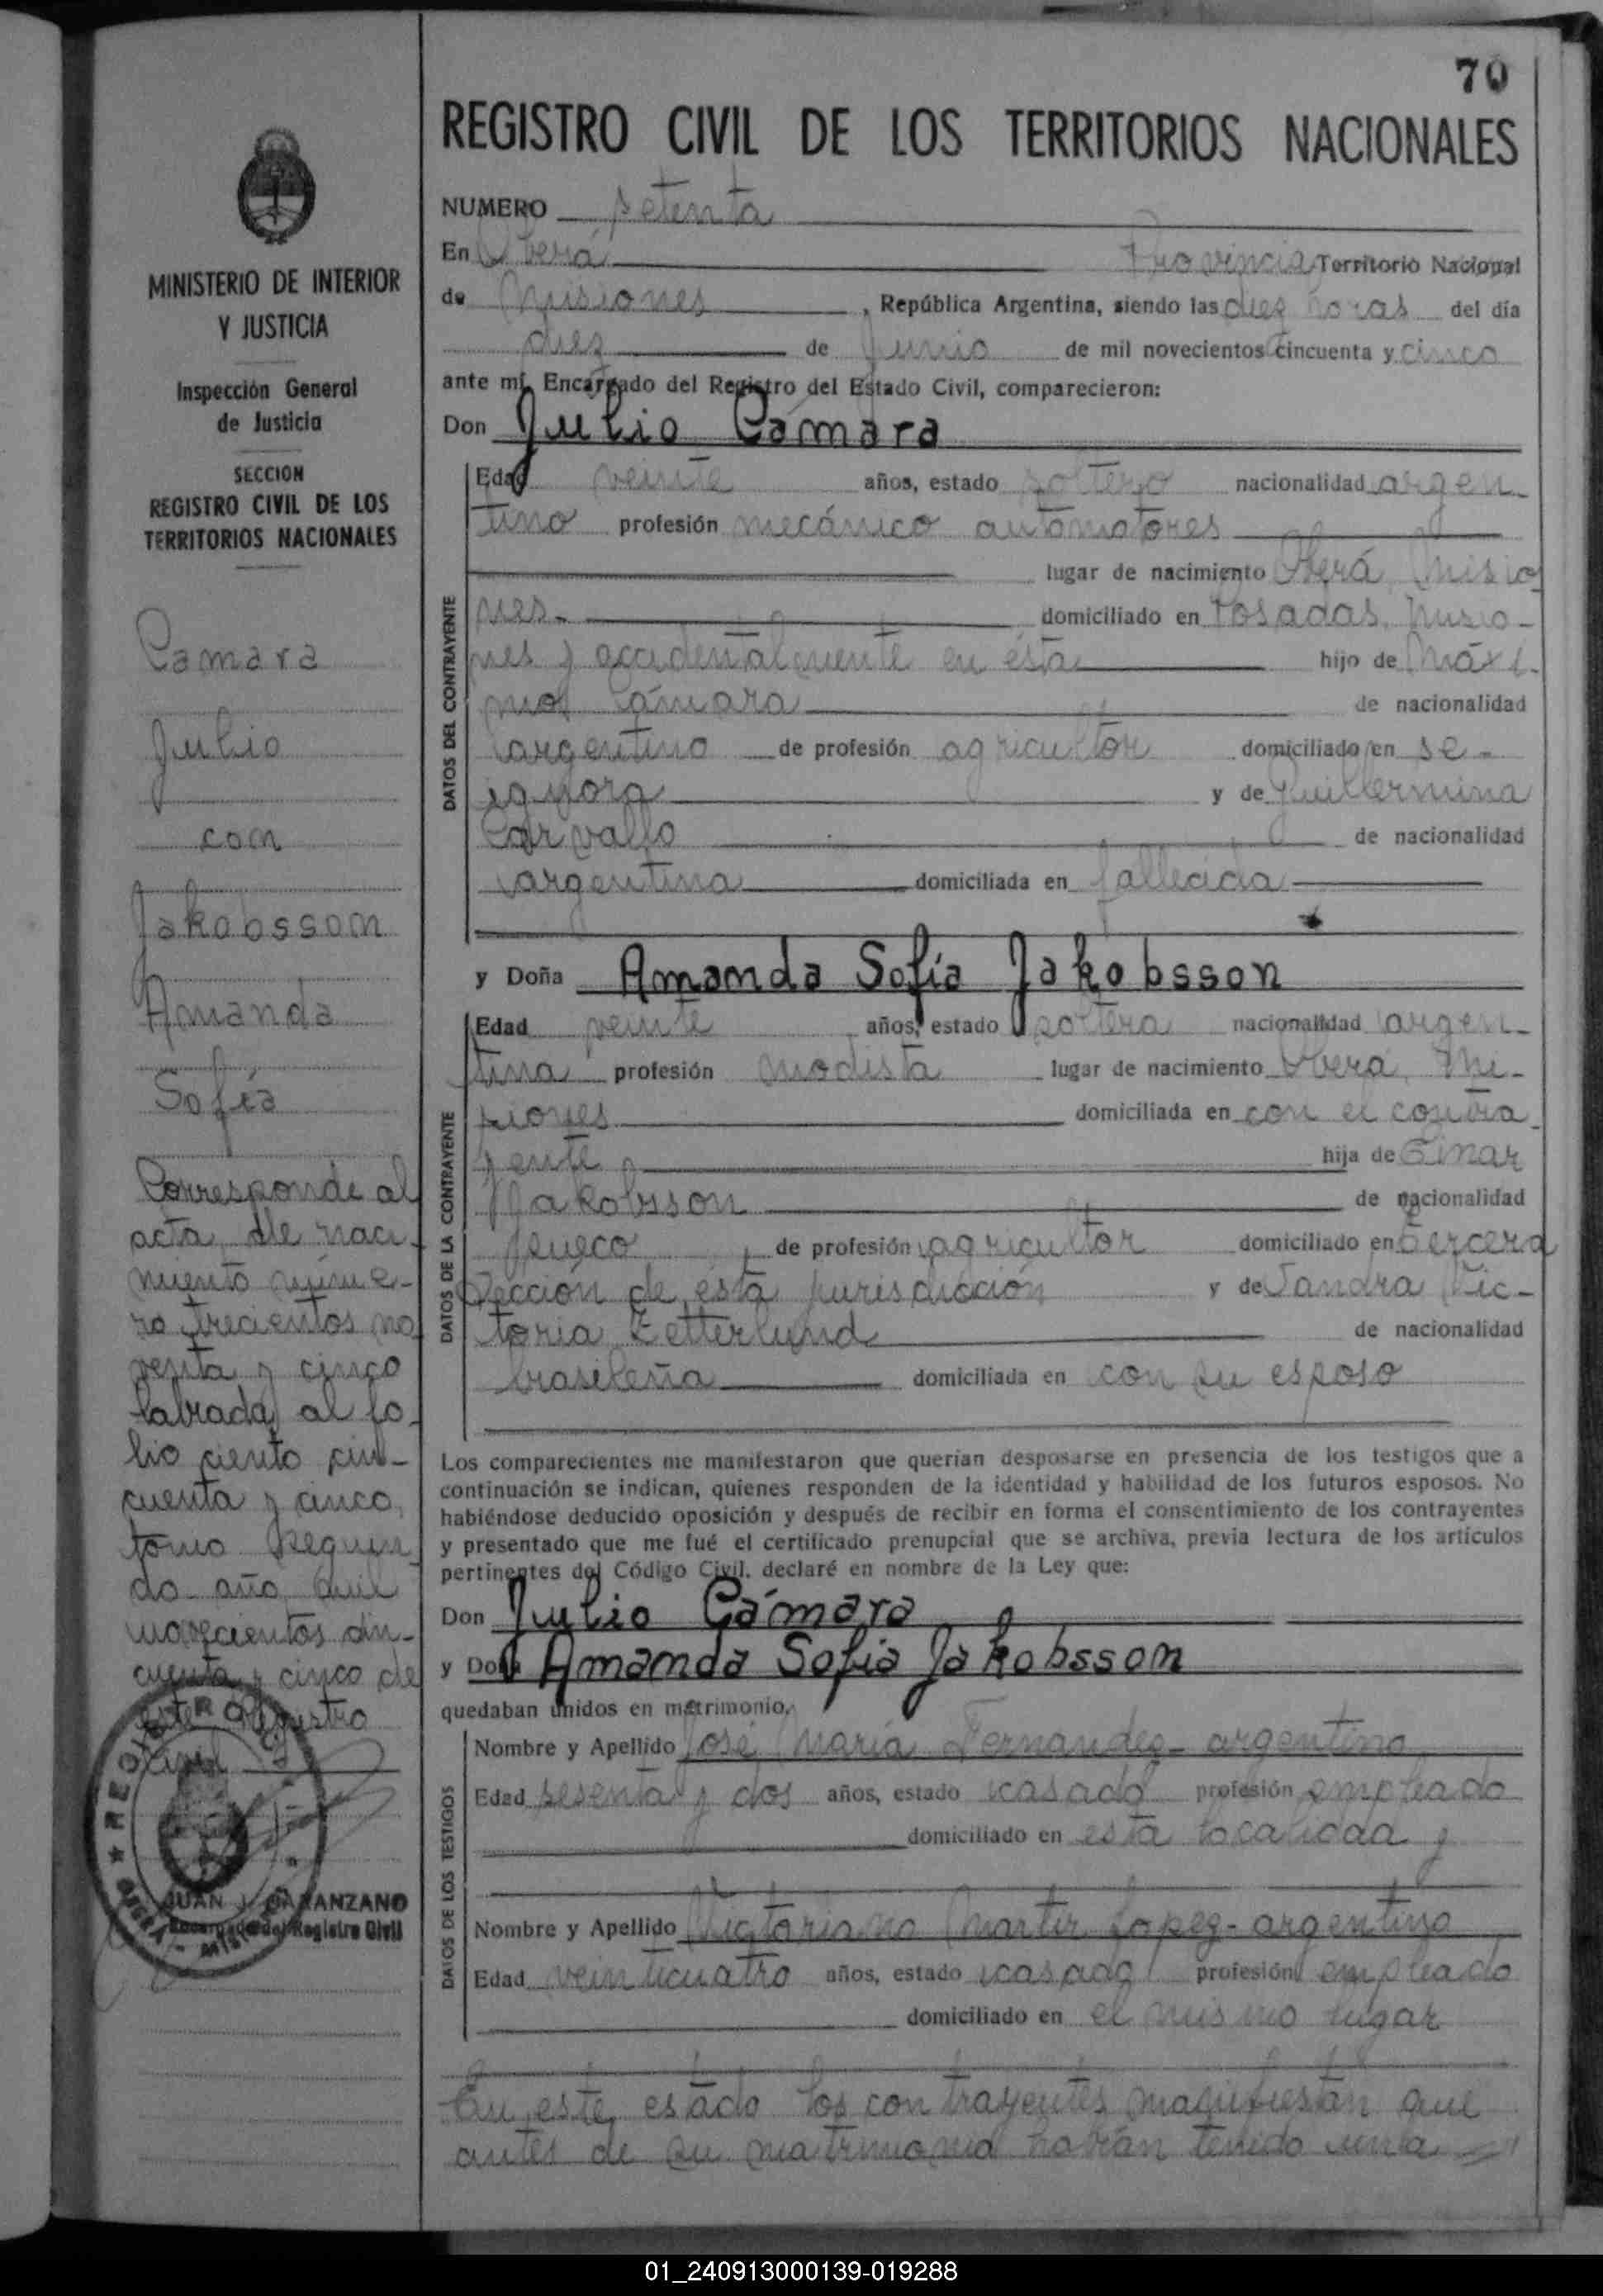 70
REGISTRO CIVIL DE LOS TERRITORIOS NACIONALES
MINISTERIO DE INTERIOR
Y JUSTICIA
Inspección General
de Justicia
SECCION
REGISTRO CIVIL DE LOS
TERRITORIOS NACIONALES
Camara
Julio
con
Jakobsson
Amanda
Sofía
Corresponde al
acta de naci-
miento núme-
ro trecientos no
venta y cinco
labrada al fo-
lio ciento cin-
cuenta y cinco,
tomo segun
do año mil
novecientos cin-
cuenta y cinco de
este Registro
Civil
JUAN J.
Encargado del Registro Civil
NUMERO setenta
En Oberá Provincia Territorio Nacional
de Misiones, República Argentina, siendo las diez horas del día
diez de Junio de mil novecientos cincuenta y cinco
ante mí, Encargado del Registro del Estado Civil, comparecieron:
Don Julio Cámara
DATOS DEL CONTRAYENTE
Edad veinte años, estado soltero nacionalidad argen-
tino profesión mecánico automotores
lugar de nacimiento Oberá, Misio
nes.- domiciliado en Posadas, Misio-
nes y accidentalmente en ésta hijo de Máxi-
mo Cámara de nacionalidad
argentino de profesión agricultor domiciliado en se-
ignora y de Guillermina
Carvallo de nacionalidad
argentina domiciliada en fallecida
y Doña Amanda Sofía Jakobsson
DATOS DE LA CONTRAYENTE
Edad veinte años, estado soltera nacionalidad argen-
tina profesión modista lugar de nacimiento Oberá, Mi-
siones domiciliada en con el contra
yente hija de Einar
Jakobsson de nacionalidad
sueco de profesión agricultor domiciliado en tercera
Sección de ésta jurisdicción y de Sandra Vic-
toria Zetterlund de nacionalidad
brasileña domiciliada en con su esposo
Los comparecientes me manifestaron que querían desposarse en presencia de los testigos que a
continuación se indican, quienes responden de la identidad y habilidad de los futuros esposos. No
habiéndose deducido oposición y después de recibir en forma el consentimiento de los contrayentes
y presentado que me fué el certificado prenupcial que se archiva, previa lectura de los artículos
pertinentes del Código Civil, declaré en nombre de la Ley que:
Don Julio Cámara
y Doña Amanda Sofia Jakobsson
quedaban unidos en matrimonio.
DATOS DE LOS TESTIGOS
Nombre y Apellido José María Fernandez - argentino
Edad sesenta y dos años, estado casado profesión empleado
domiciliado en esta localidad y
Nombre y Apellido Victoriano Martir Lopez - argentino
Edad veinticuatro años, estado casado profesión empleado
domiciliado en el mismo lugar
En este estado los contrayentes manifiestan que
antes de su matrimonio habían tenido una
01_240913000139-019288